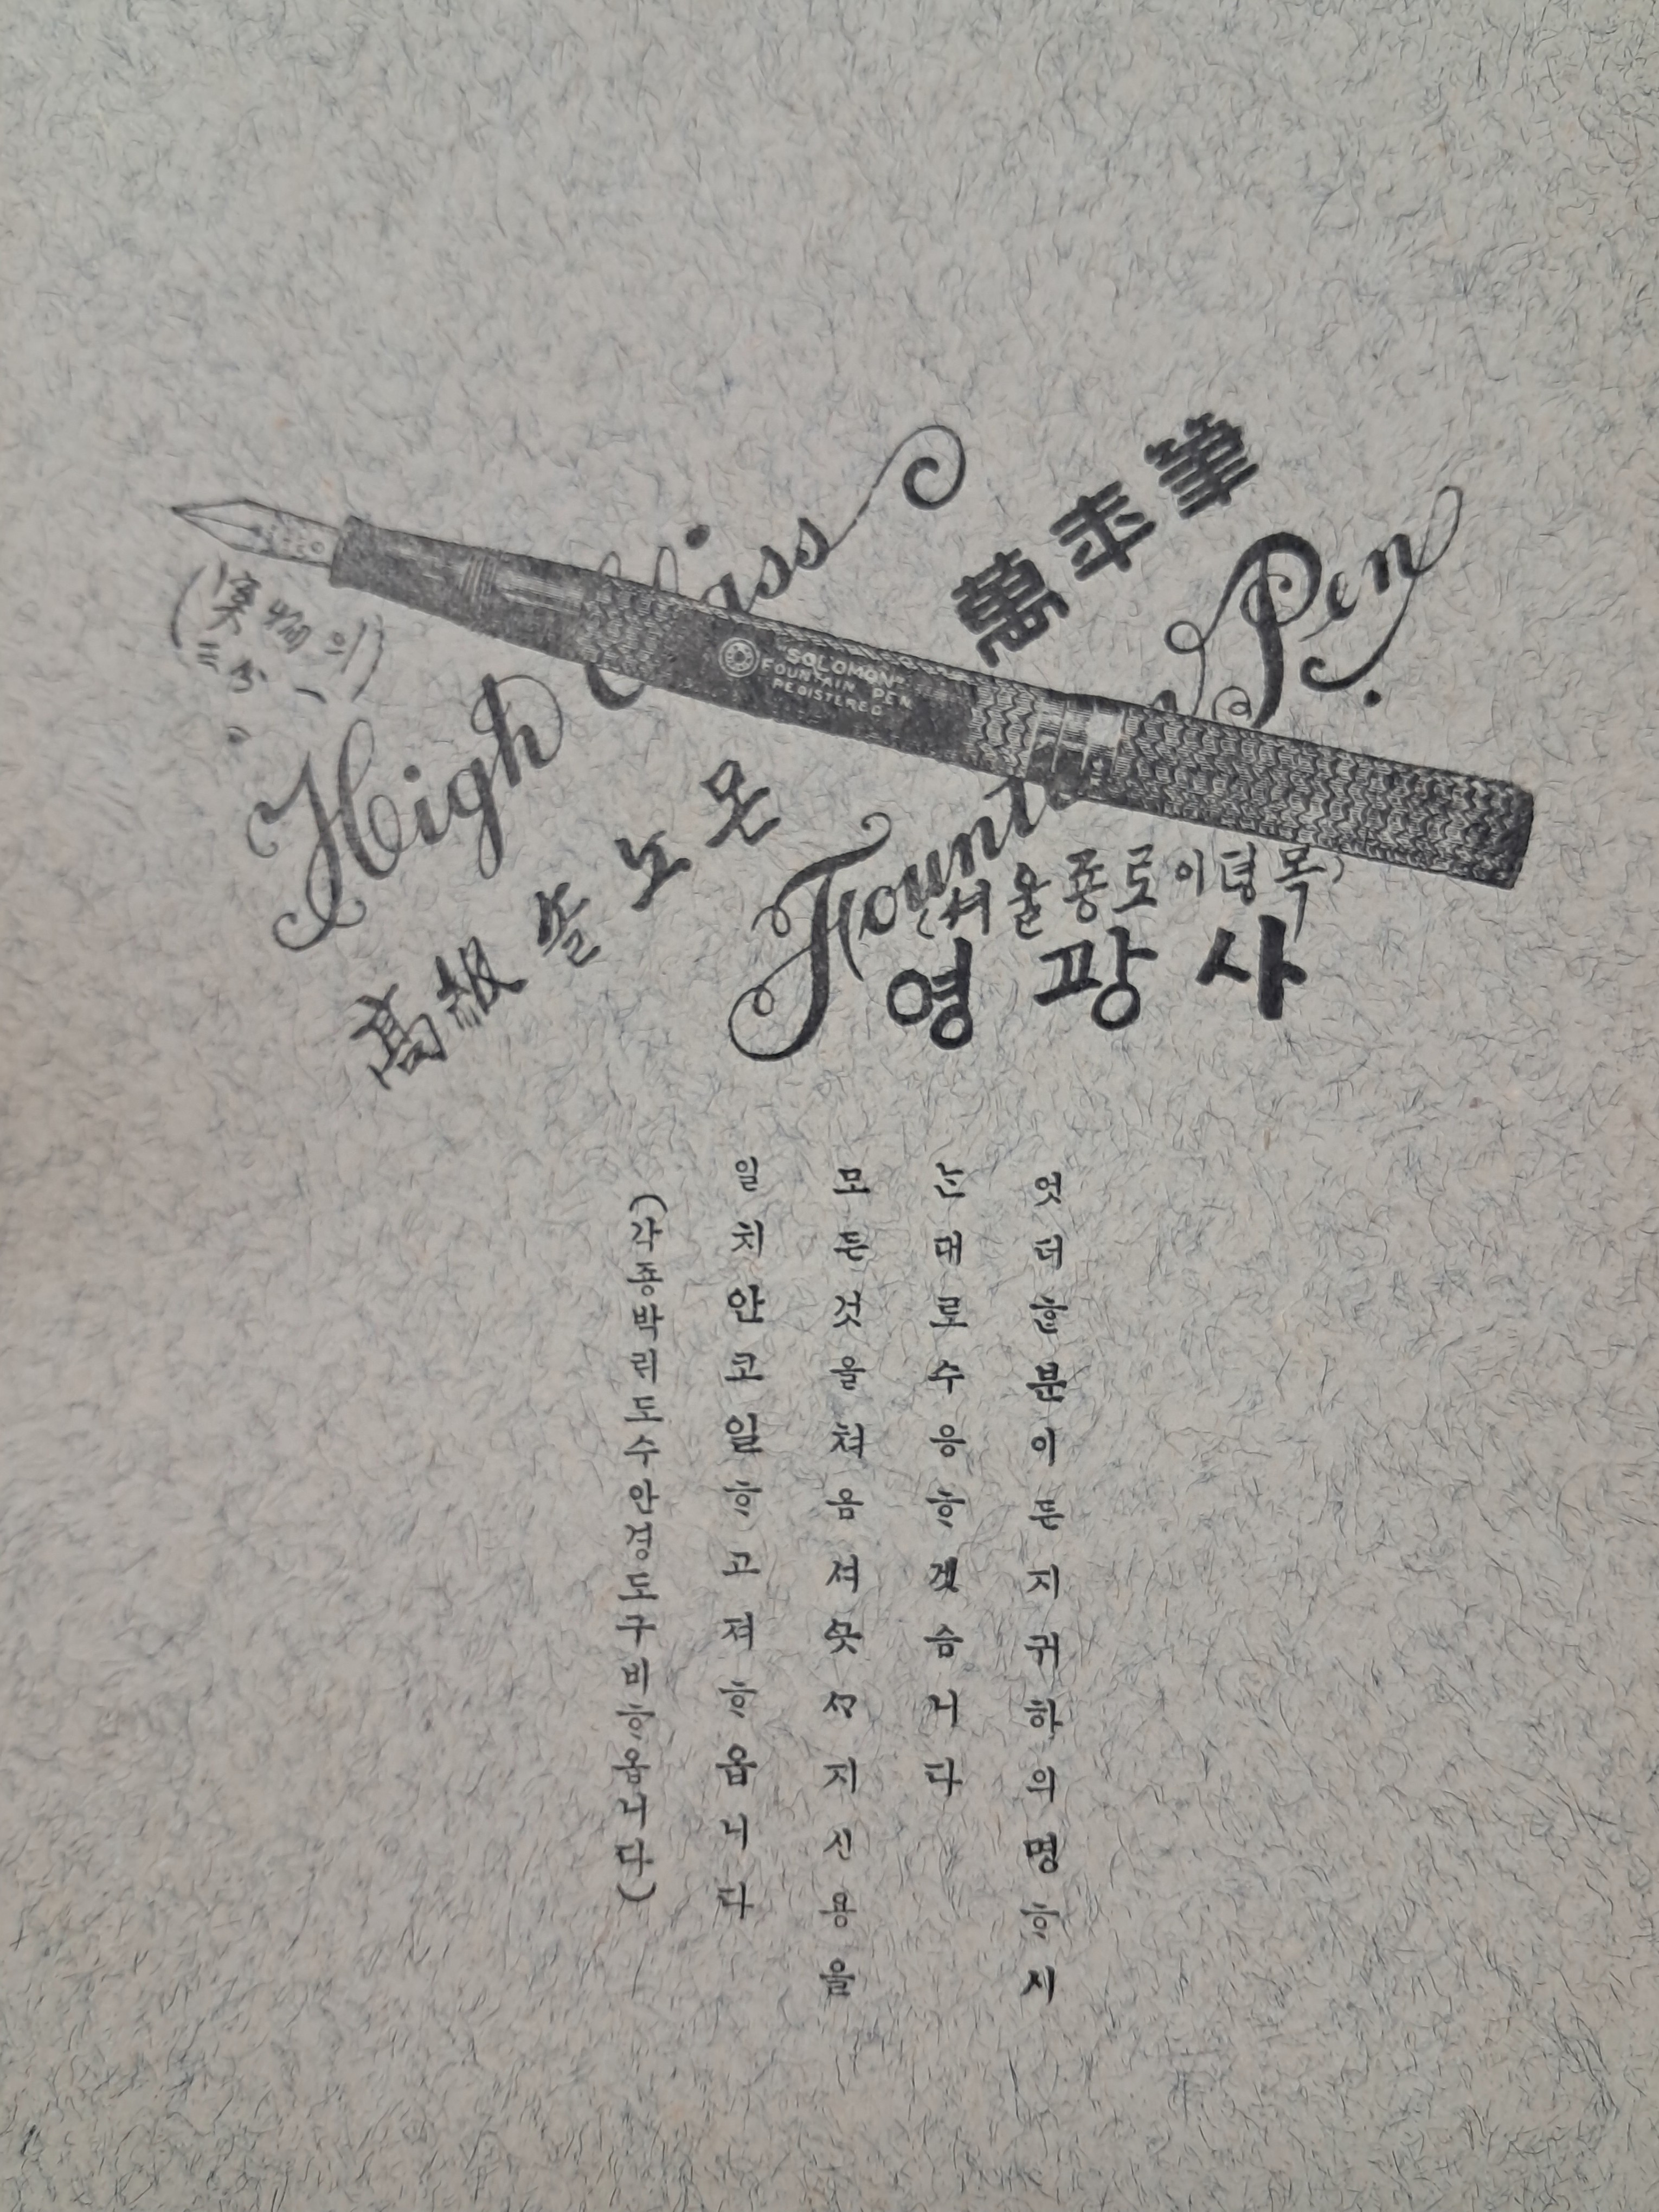 (実物의
三分一)
High Class
萬年筆
"SOLOMON"
FOUNTAIN PEN
REGISTERED
高級쏠노몬
Fountain Pen.
(셔울죵로이뎡목)
영광사
엇더ᄒᆞᆫ분이든지귀하의명ᄒᆞ시
ᄂᆞᆫ대로수응ᄒᆞ겟슴니다
모든것을쳐음셔ᄭᅳᆺᄭᆞ지신용을
일치안코일ᄒᆞ고져ᄒᆞ옵니다
(각죵박리도수안경도구비ᄒᆞ옵니다)